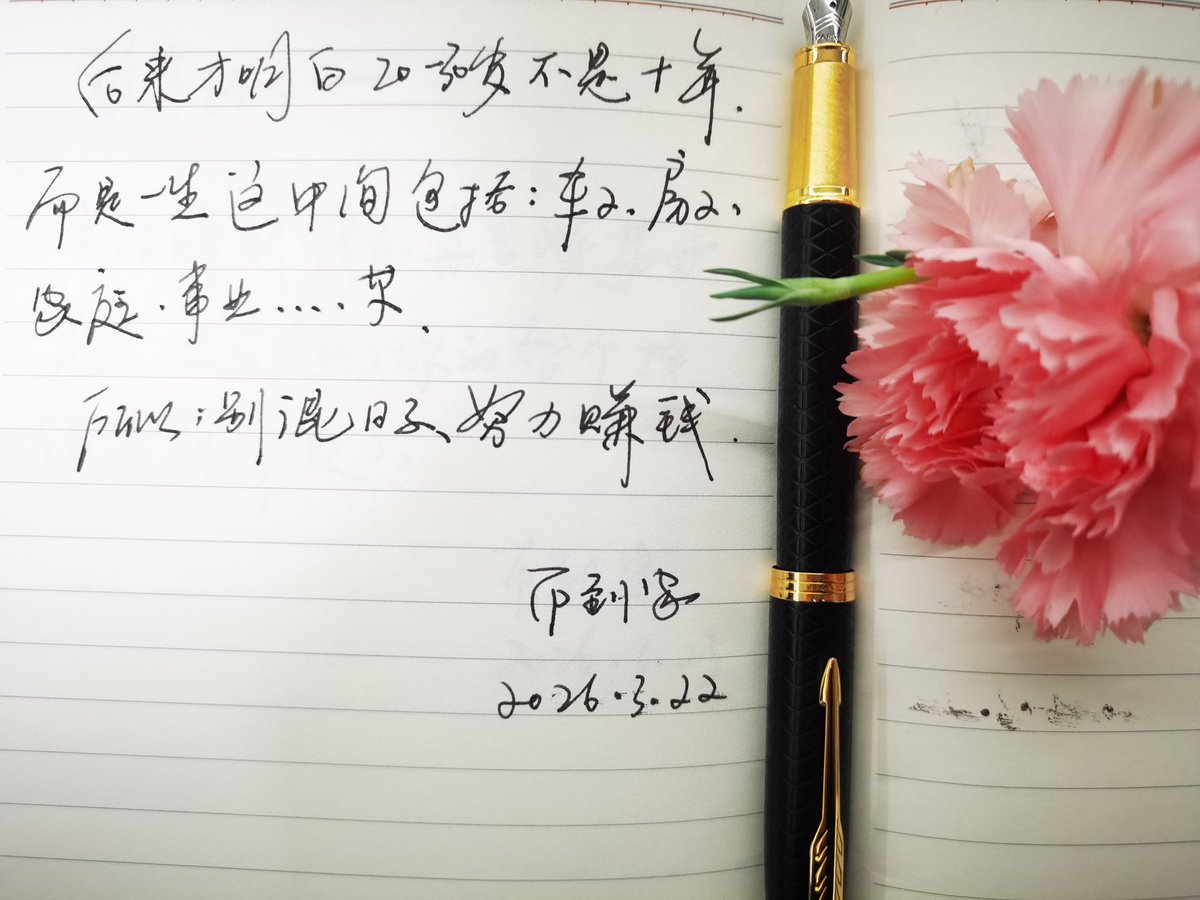 后来才明白20-30岁不是十年.
而是一生这中间包括:车子、房子、
家庭.事业....等.
所以:别混日子、努力赚钱.
2026.3.22